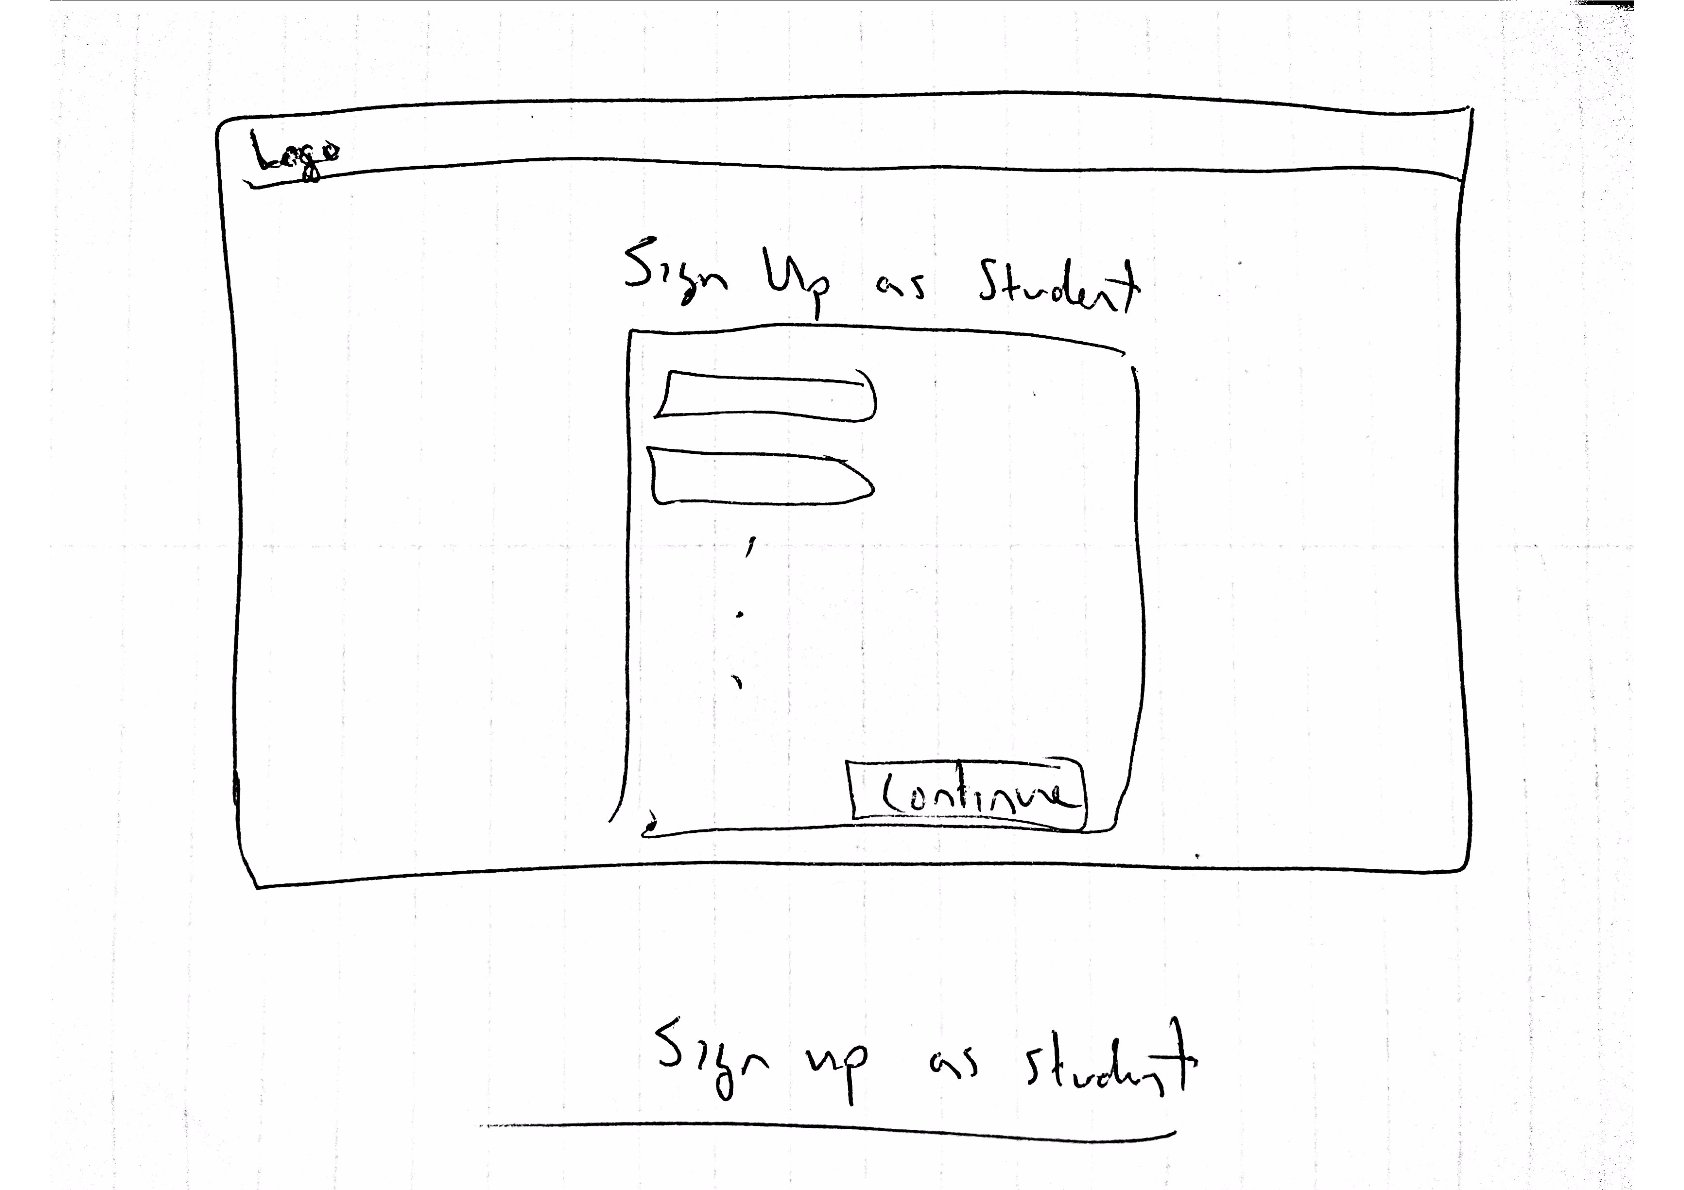 Logo
Sign Up as Student
Continue
Sign up as student